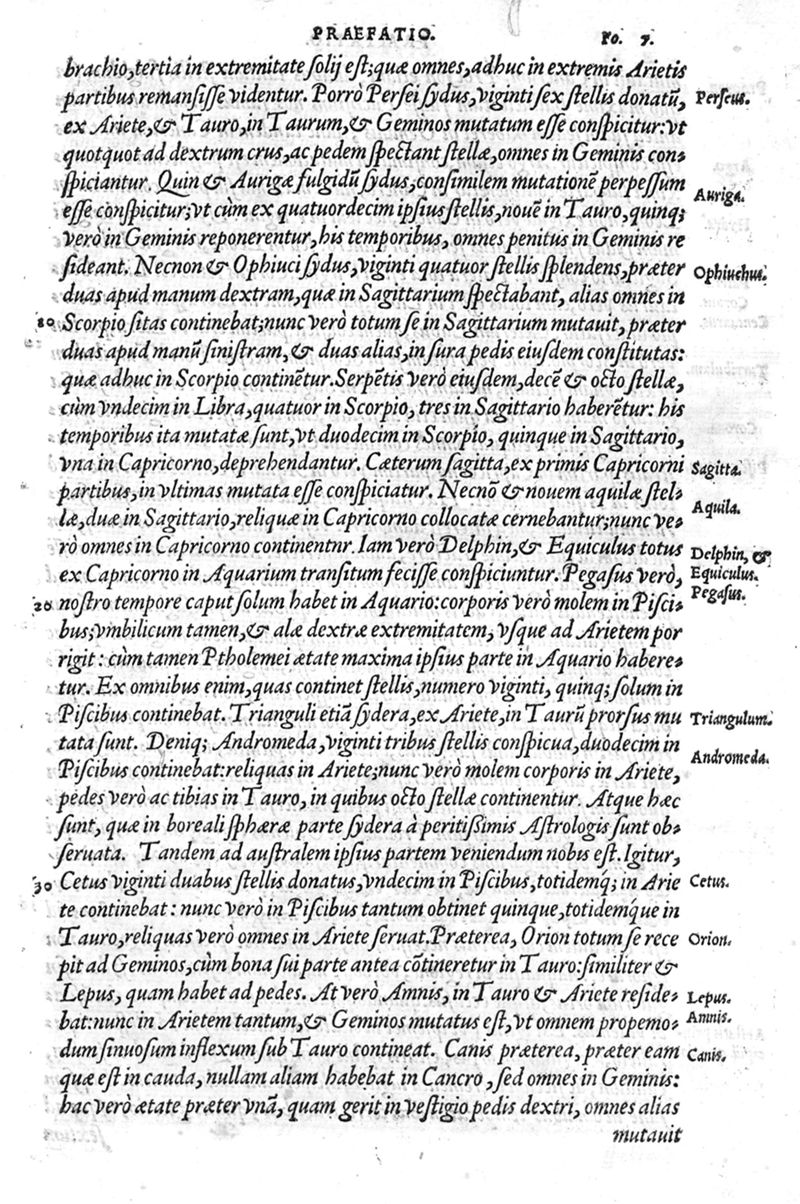 PRAEFATIO. Fo. 7.
brachio, tertia in extremitate solij est; quæ omnes, adhuc in extremis Arietis
partibus remansisse videntur. Porrò Persei sydus, viginti sex stellis donatũ, Perseus.
ex Ariete, & Tauro, in Taurum, & Geminos mutatum esse conspicitur: vt
quotquot ad dextrum crus, ac pedem spectant stellæ, omnes in Geminis con-
spiciantur. Quin & Aurigæ fulgidũ sydus, consimilem mutationẽ perpessum
esse conspicitur; vt cùm ex quatuordecim ipsius stellis, nouẽ in Tauro, quinq; Auriga.
verò in Geminis reponerentur, his temporibus, omnes penitus in Geminis re
sideant. Necnon & Ophiuci sydus, viginti quatuor stellis splendens, præter Ophiuchus.
duas apud manum dextram, quæ in Sagittarium spectabant, alias omnes in
10 Scorpio sitas continebat; nunc verò totum se in Sagittarium mutauit, præter
duas apud manũ sinistram, & duas alias, in sura pedis eiusdem constitutas:
quæ adhuc in Scorpio continẽtur. Serpẽtis verò eiusdem, decẽ & octo stellæ,
cùm vndecim in Libra, quatuor in Scorpio, tres in Sagittario haberẽtur: his
temporibus ita mutatæ sunt, vt duodecim in Scorpio, quinque in Sagittario,
vna in Capricorno, deprehendantur. Cæterum sagitta, ex primis Capricorni Sagitta.
partibus, in vltimas mutata esse conspiciatur. Necnõ & nouem aquilæ stel-
læ, duæ in Sagittario, reliquæ in Capricorno collocatæ cernebantur; nunc ve- Aquila.
rò omnes in Capricorno continentnr. Iam verò Delphin, & Equiculus totus Delphin, &
ex Capricorno in Aquarium transitum fecisse conspiciuntur. Pegasus verò, Equiculus.
20 nostro tempore caput solum habet in Aquario: corporis verò molem in Pisci- Pegasus.
bus; vmbilicum tamen, & alæ dextræ extremitatem, vsque ad Arietem por
rigit: cùm tamen Ptholemei ætate maxima ipsius parte in Aquario habere-
tur. Ex omnibus enim, quas continet stellis, numero viginti, quinq; solum in
Piscibus continebat. Trianguli etiã sydera, ex Ariete, in Taurũ prorsus mu Triangulum.
tata sunt. Deniq; Andromeda, viginti tribus stellis conspicua, duodecim in
Piscibus continebat: reliquas in Ariete; nunc verò molem corporis in Ariete, Andromeda.
pedes verò ac tibias in Tauro, in quibus octo stellæ continentur. Atque hæc
sunt, quæ in boreali sphæræ parte sydera à peritißimis Astrologis sunt ob-
seruata. Tandem ad australem ipsius partem veniendum nobis est. Igitur,
30 Cetus viginti duabus stellis donatus, vndecim in Piscibus, totidemq́; in Arie Cetus.
te continebat: nunc verò in Piscibus tantum obtinet quinque, totidemq́ue in
Tauro, reliquas verò omnes in Ariete seruat. Præterea, Orion totum se rece Orion.
pit ad Geminos, cùm bona sui parte antea cõtineretur in Tauro: similiter &
Lepus, quam habet ad pedes. At verò Amnis, in Tauro & Ariete reside- Lepus.
bat: nunc in Arietem tantum, & Geminos mutatus est, vt omnem propemo- Amnis.
dum sinuosum inflexum sub Tauro contineat. Canis præterea, præter eam Canis.
quæ est in cauda, nullam aliam habebat in Cancro, sed omnes in Geminis:
hac verò ætate præter vnã, quam gerit in vestigio pedis dextri, omnes alias
mutauit